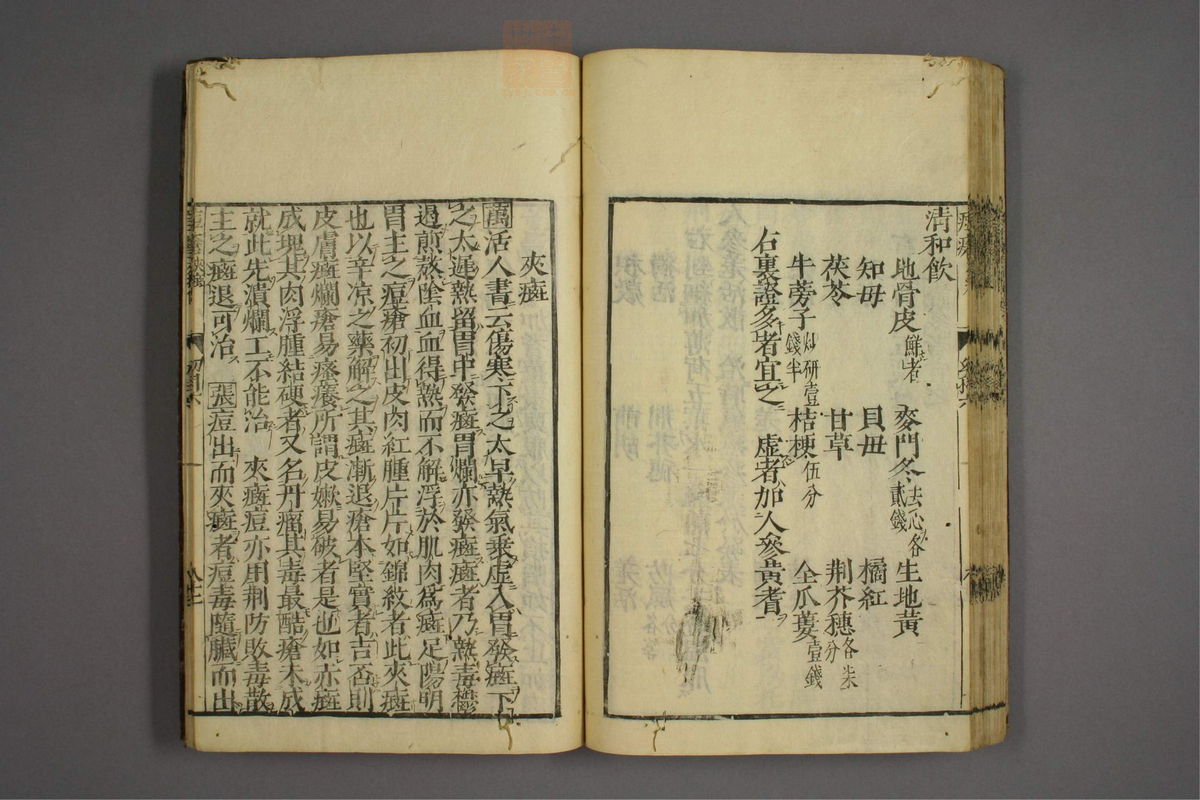 清和飲
地骨皮鮮者 麥門冬去心各貳錢 生地黃
知母 貝母 橘紅
茯苓 甘草 荆芥穗各柒分
牛蒡子炒研壹錢半 桔梗伍分 仝瓜蔞壹錢
右裏證多者宜之 虛者加人參黃耆
夾癍
萬活人書云傷寒下之太早熱氣乘虛入胃發癍下
之太遲熱留胃中發癍胃爛亦發癍癍者乃熱毒鬱
過煎熬陰血血得熱而不解浮於肌肉爲癍足陽明
胃主之痘瘡初出皮肉紅腫片片如錦紋者此夾癍
也以辛凉之藥解之其癍漸退瘡本堅實者吉否則
皮膚癍爛瘡易癢癢所謂皮嫩易破者是也如赤癍
成塊其肉浮腫結硬者又名丹瘤其毒最酷瘡未成
就此先潰爛工不能治 夾癍痘亦用荆防敗毒散
主之癍退可治 張痘出而夾癍者痘毒隨臟而出